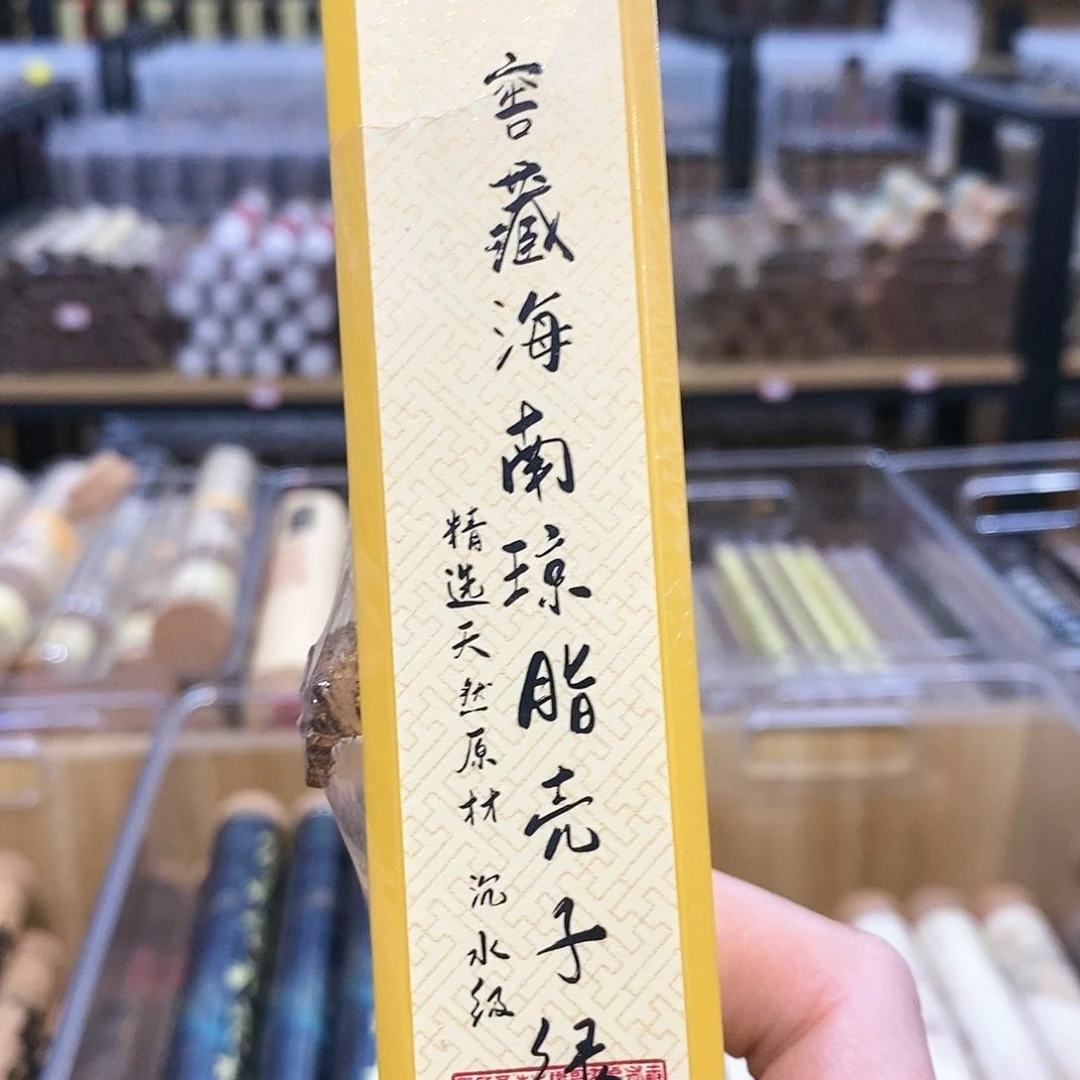 窖藏海南琼脂壳子绿
精选天然原材 沉水级